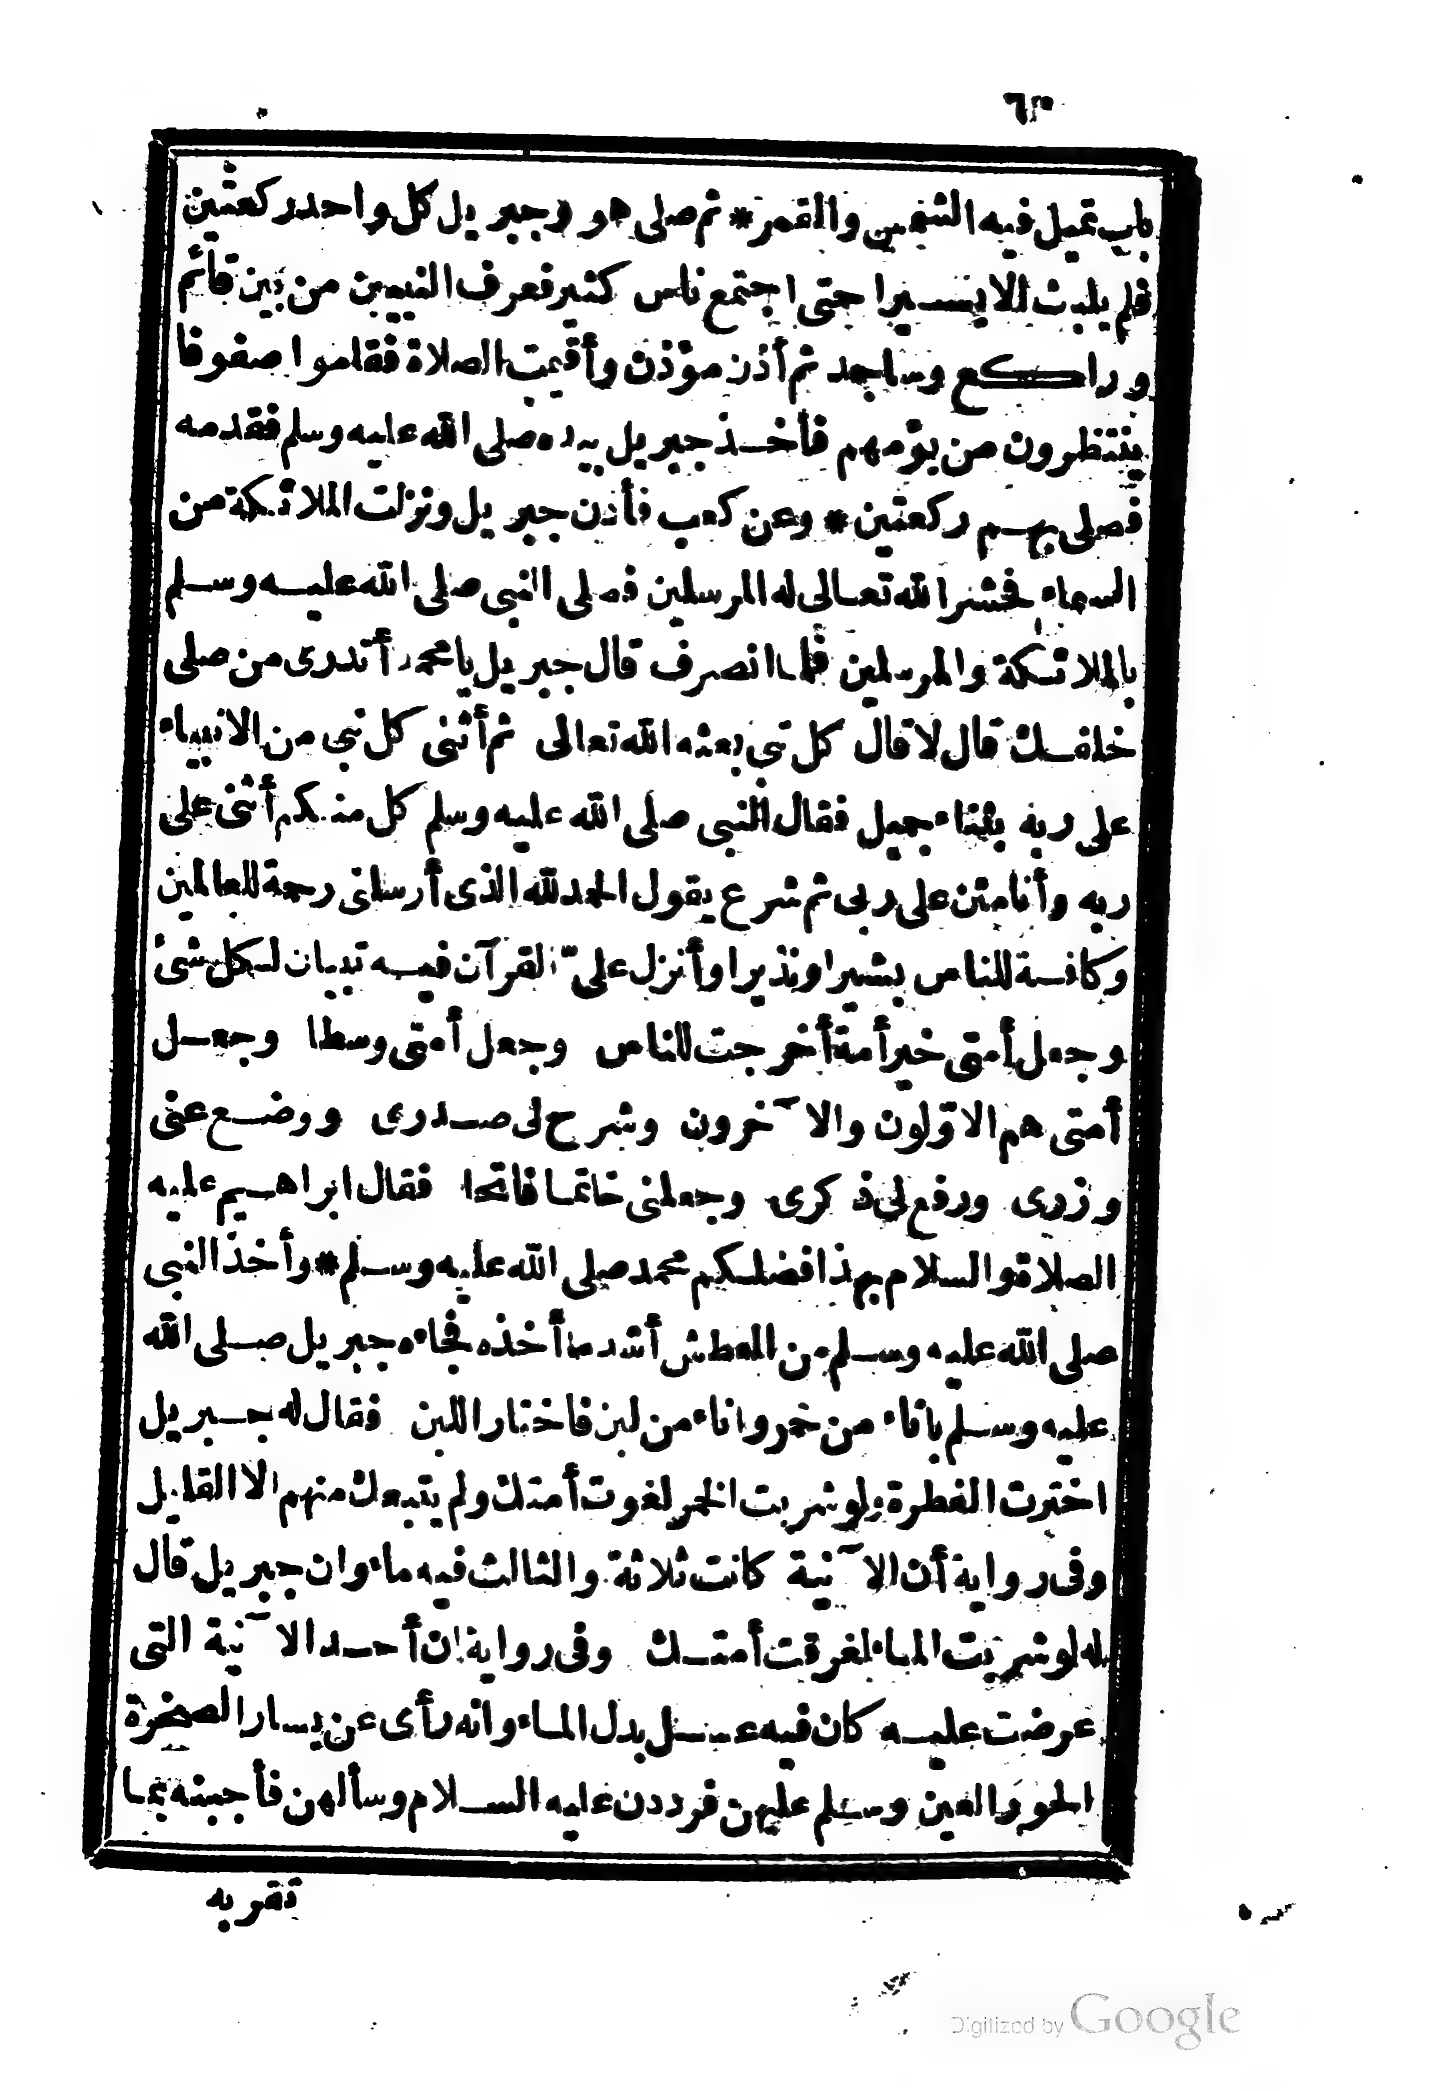 ٦٣
باب تميل فيه الشمس والقمر * ثم صلى هو وجبريل كل واحد ركعتين
فلم يلبث الا يسيرا حتى اجتمع ناس كثير فعرف النبيين من بين قائم
وراكع وساجد ثم أذن مؤذن وأقيمت الصلاة فقاموا صفوفا
ينتظرون من يؤمهم فأخذ جبريل بيده صلى الله عليه وسلم فقدمه
فصلى بهم ركعتين * وعن كعب فأذن جبريل ونزلت الملائكة من
السماء فحشر الله تعالى له المرسلين فصلى النبي صلى الله عليه وسلم
بالملائكة والمرسلين فلما انصرف قال جبريل يا محمد أتدرى من صلى
خلفك قال لا قال كل نبي بعثه الله تعالى ثم أثنى كل نبي من الانبياء
على ربه بثناء جميل فقال النبي صلى الله عليه وسلم كل منكم أثنى على
ربه وأنا مثن على ربى ثم شرع يقول الحمد لله الذى أرسلنى رحمة للعالمين
وكافة للناس بشيرا ونذيرا وأنزل علىّ القرآن فيه تبيان لكل شئ
وجعل أمتى خير أمة أخرجت للناس وجعل أمتى وسطا وجعل
أمتى هم الاوّلون والآخرون وشرح لى صدرى ووضع عنى
وزرى ورفع لى ذكرى وجعلنى خاتما فاتحا فقال ابراهيم عليه
الصلاة والسلام بهذا فضلكم محمد صلى الله عليه وسلم * وأخذ النبي
صلى الله عليه وسلم من العطش أشد ما أخذه فجاءه جبريل صلى الله
عليه وسلم باناء من خمر واناء من لبن فاختار اللبن فقال له جبريل
اخترت الفطرة ولو شربت الخمر لغوت أمتك ولم يتبعك منهم الا القليل
وفى رواية أن الآنية كانت ثلاثة والثالث فيه ماء وان جبريل قال
له لو شربت الماء لغرقت أمتك وفى رواية ان أحد الآنية التى
عرضت عليه كان فيه عسل بدل الماء وانه رأى عن يسار الصخرة
الحور العين وسلم عليهن فرددن عليه السلام وسألهن فأجبنه بما
تقر به
Digitized by Google